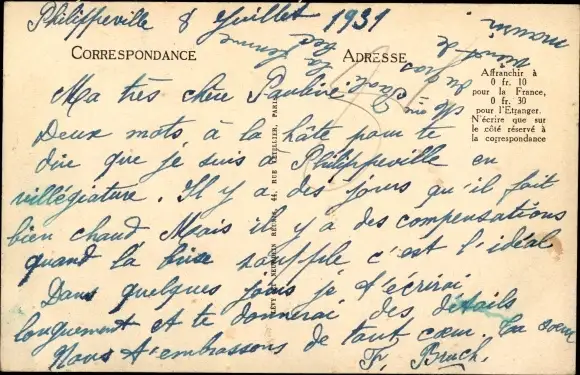 Philippeville 8 Juillet 1931
CORRESPONDANCE
ADRESSE
Affranchir à
0 fr. 10
pour la France,
0 fr. 30
pour l'Etranger.
N'écrire que sur
le côté réservé à
la correspondance
Ma très chère Pauline
Deux mots à la hâte pour te
dire que je suis à Philippeville en
villégiature. Il y a des jours qu'il fait
bien chaud Mais il y a des compensations
quand la brise souffle c'est l'idéal
Dans quelques jours je t'écrirai
longuement et te donnerai des détails
Nous t'embrassons de tout cœur. Ta sœur
Bruch.
LÉVY ET NEURDEIN RÉUNIS, 44, RUE LETELLIER, PARIS